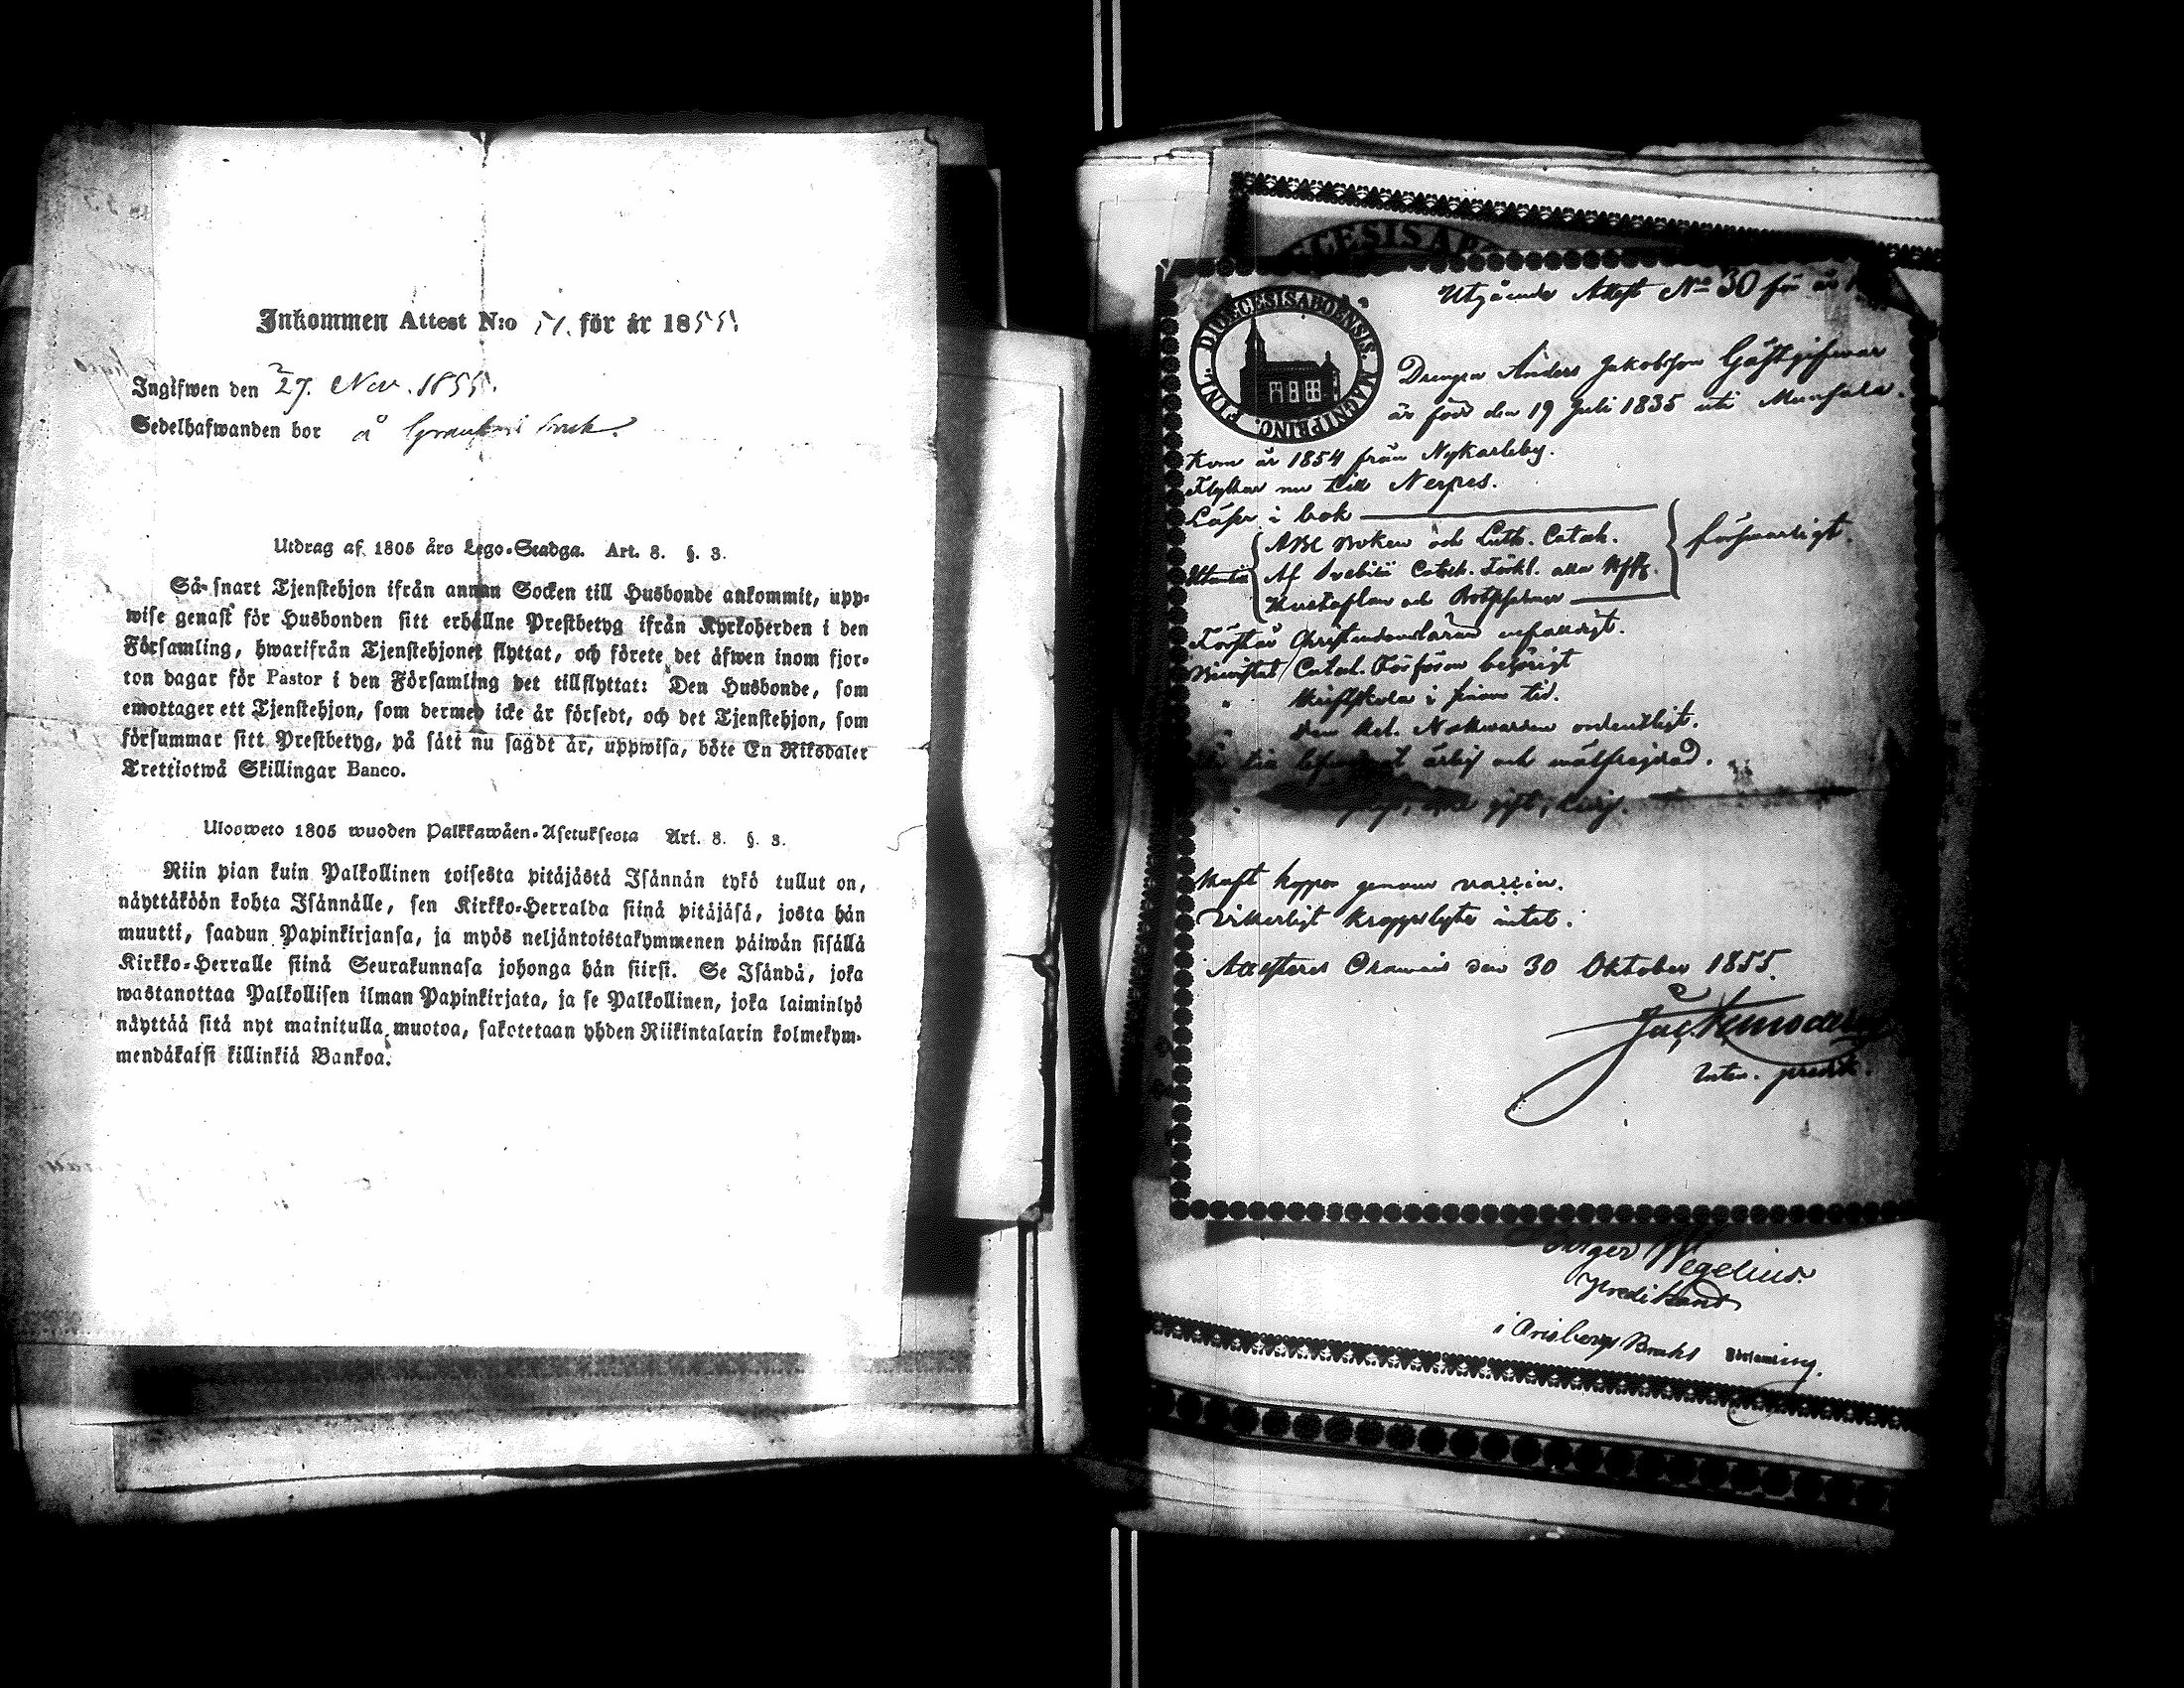 Inkommen Attest N:o 51. för år 1855.
Ingifwen den 27. Nov. 1855.
Sedelhafwanden bor å
Utdrag af 1805 års Lego-Stadga. Art. 8. §. 3.
Så-snart Tjenstehjon ifrån annan Socken till Husbonde ankommit, upp-
wise genast för Husbonden sitt erhållne Prestbetyg ifrån Kyrkoherden i den
Församling, hwarifrån Tjenstehjonet flyttat, och förete det äfwen inom fjor-
ton dagar för Pastor i den Församling det tillflyttat: Den Husbonde, som
emottager ett Tjenstehjon, som dermed icke är försedt, och det Tjenstehjon, som
försummar sitt Prestbetyg, på sätt nu sagdt är, uppwisa, böte En Riksdaler
Trettiotwå Skillingar Banco.
Ulosweto 1805 wuoden Palkkawäen-Asetuksesta Art. 8. §. 3.
Niin pian kuin Palkollinen toisesta pitäjästä Isännän tykö tullut on,
näyttäköön kohta Isännälle, sen Kirkko-Herralda siinä pitäjäsä, josta hän
muutti, saadun Papinkirjansa, ja myös neljäntoistakymmenen päiwän sisällä
Kirkko-Herralle siinä Seurakunnasa johonga hän siirsi. Se Isändä, joka
wastanottaa Palkollisen ilman Papinkirjata, ja se Palkollinen, joka laiminlyö
näyttää sitä nyt mainitulla muotoa, sakotetaan yhden Riikintalarin kolmekym-
mendäkaksi killinkiä Bankoa.
DIOECESIS ABOENSIS. MAGNI PRINC. FINL.
Utgående Attest No 30 för år
Drengen Anders Jakobsson Gästgifwar
är född den 19 Juli 1835 uti Munsala.
Kom år 1854 från Nykarleby.
Flyttar nu till Nerpes.
Läser i bok
ABC Boken och Luth. Catech.
Utantill Af Svebilii Catech. Förkl. alla
Hustaflan och
försvarligt.
Förstår Christendomsläran enfaldigt.
Bevistat Catech. Förhören behörigt
" Skriftskola i sinom tid.
" Den Hel. Nattvarden ordentligt.
ärlig och wälfrejdad.
gift, ledig.
Haft koppor genom vaccin.
Wikterligt kroppslyte intet.
Attesteras Oravais den 30 Oktober 1855.
Wegelius.
Predikant
i Orisbergs Bruks Församling.